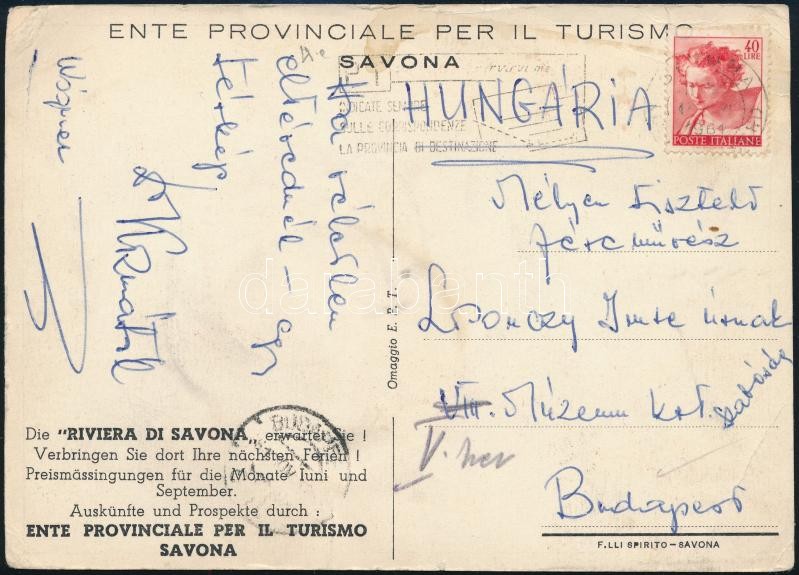 ENTE PROVINCIALE PER IL TURISMO
SAVONA
40
LIRE
POSTE ITALIANE
INDICATE SEMPRE
SULLE CORRISPONDENZE
LA PROVINCIA DI DESTINAZIONE
HUNGÁRIA
Ha véletlen
eltévednél – egy
térkép
Mélyen tisztelt
Úrnak
VIII. Múzeum krt.
V. ker
Budapest
Omaggio E. P. T.
darabanth
BUDAPE
Die "RIVIERA DI SAVONA„ erwartet Sie !
Verbringen Sie dort Ihre nächsten Ferien !
Preismässingungen für die Monate Iuni und
September.
Auskünfte und Prospekte durch :
ENTE PROVINCIALE PER IL TURISMO
SAVONA
F.LLI SPIRITO – SAVONA